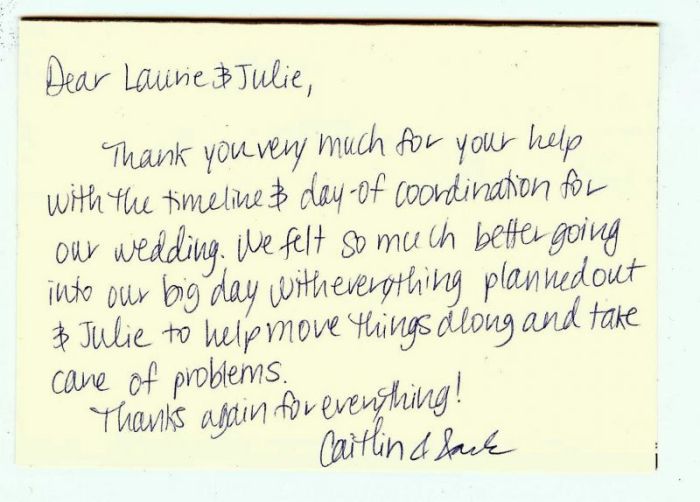 Dear Laurie & Julie,
Thank you very much for your help
with the timeline & day-of coordination for
our wedding. We felt so much better going
into our big day with everything planned out
& Julie to help move things along and take
care of problems.
Thanks again for everything!
Caitlin &